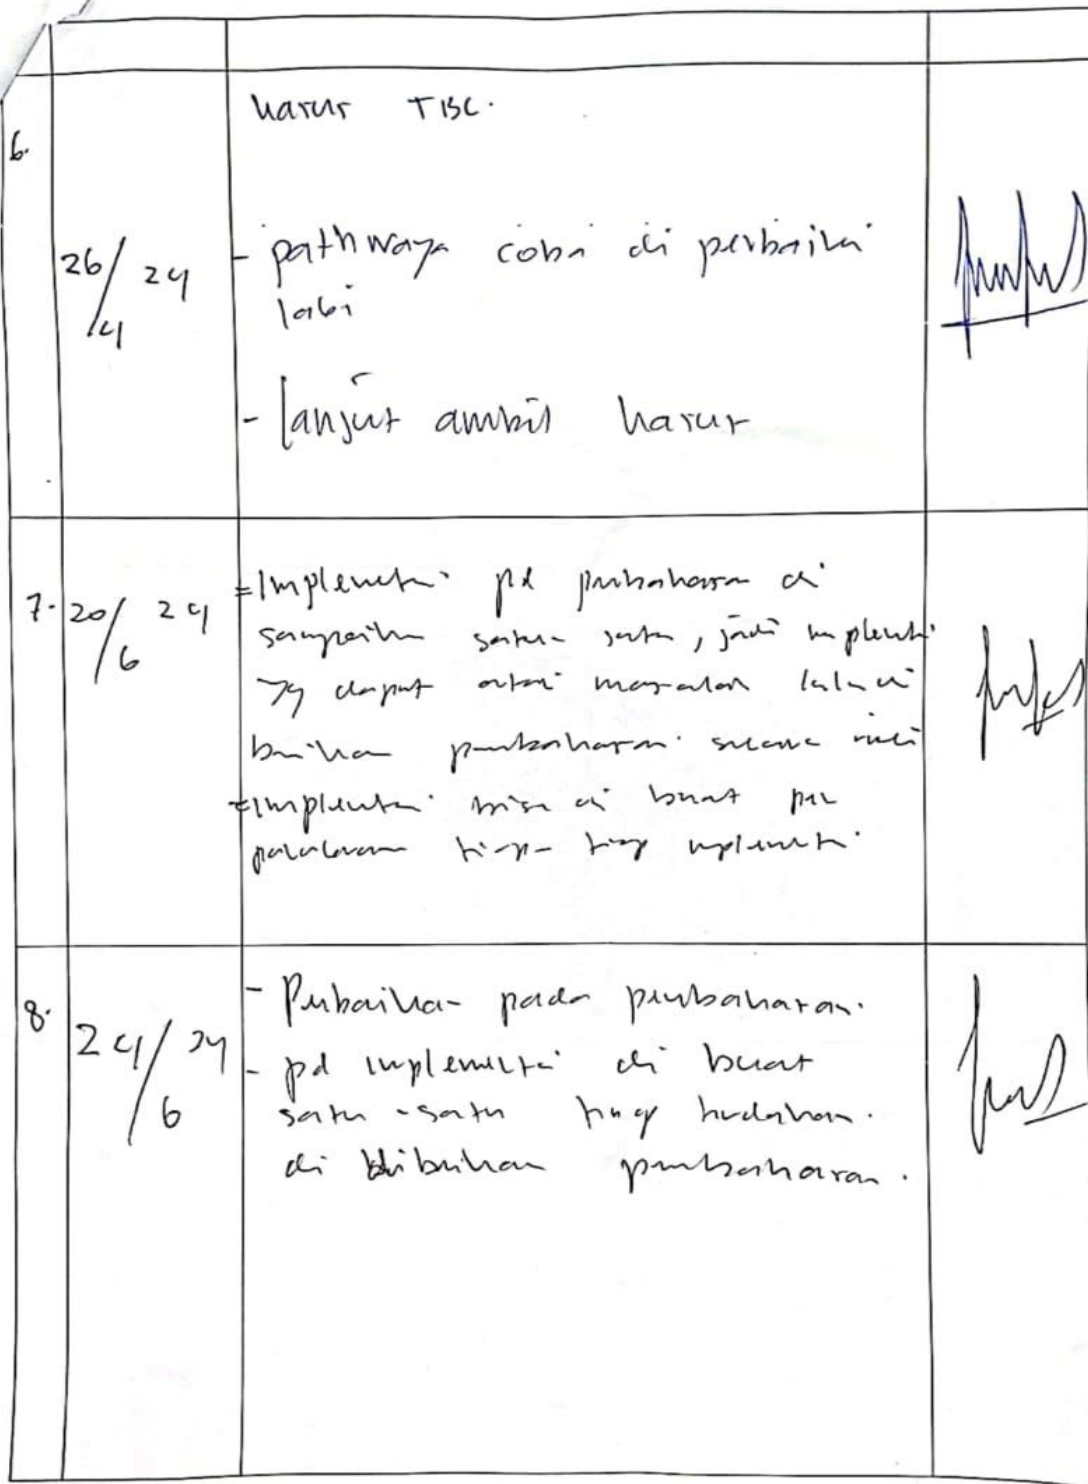 kasus TBC.
6.
26/4 24
- pathwaya coba di perbaiki
lagi
- lanjut ambil kasus
7. 20/6 24
= Implementasi pd pembahasan di
sampaikan satu- satu, jadi implementasi
yg dapat atasi masalah lalu di
berikan pembahasan secara
= Implementasi bisa di buat per
tiap- tiap implementasi
8. 24/6 24
- Perbaikan pada pembahasan.
- pd implementasi di buat
satu - satu tiap tindakan.
di berikan pembahasan.